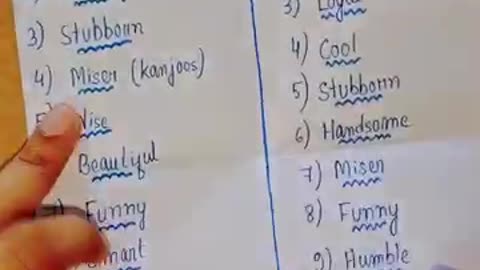 3) Stubborn
4) Miser (kanjoos)
5) Wise
Beautiful
7) Funny
Smart
3) Loyal
4) Cool
5) Stubborn
6) Handsome
7) Miser
8) Funny
9) Humble